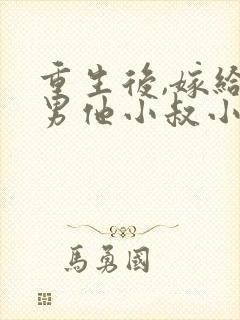 重生後,嫁給
男他小叔小
馬勇國